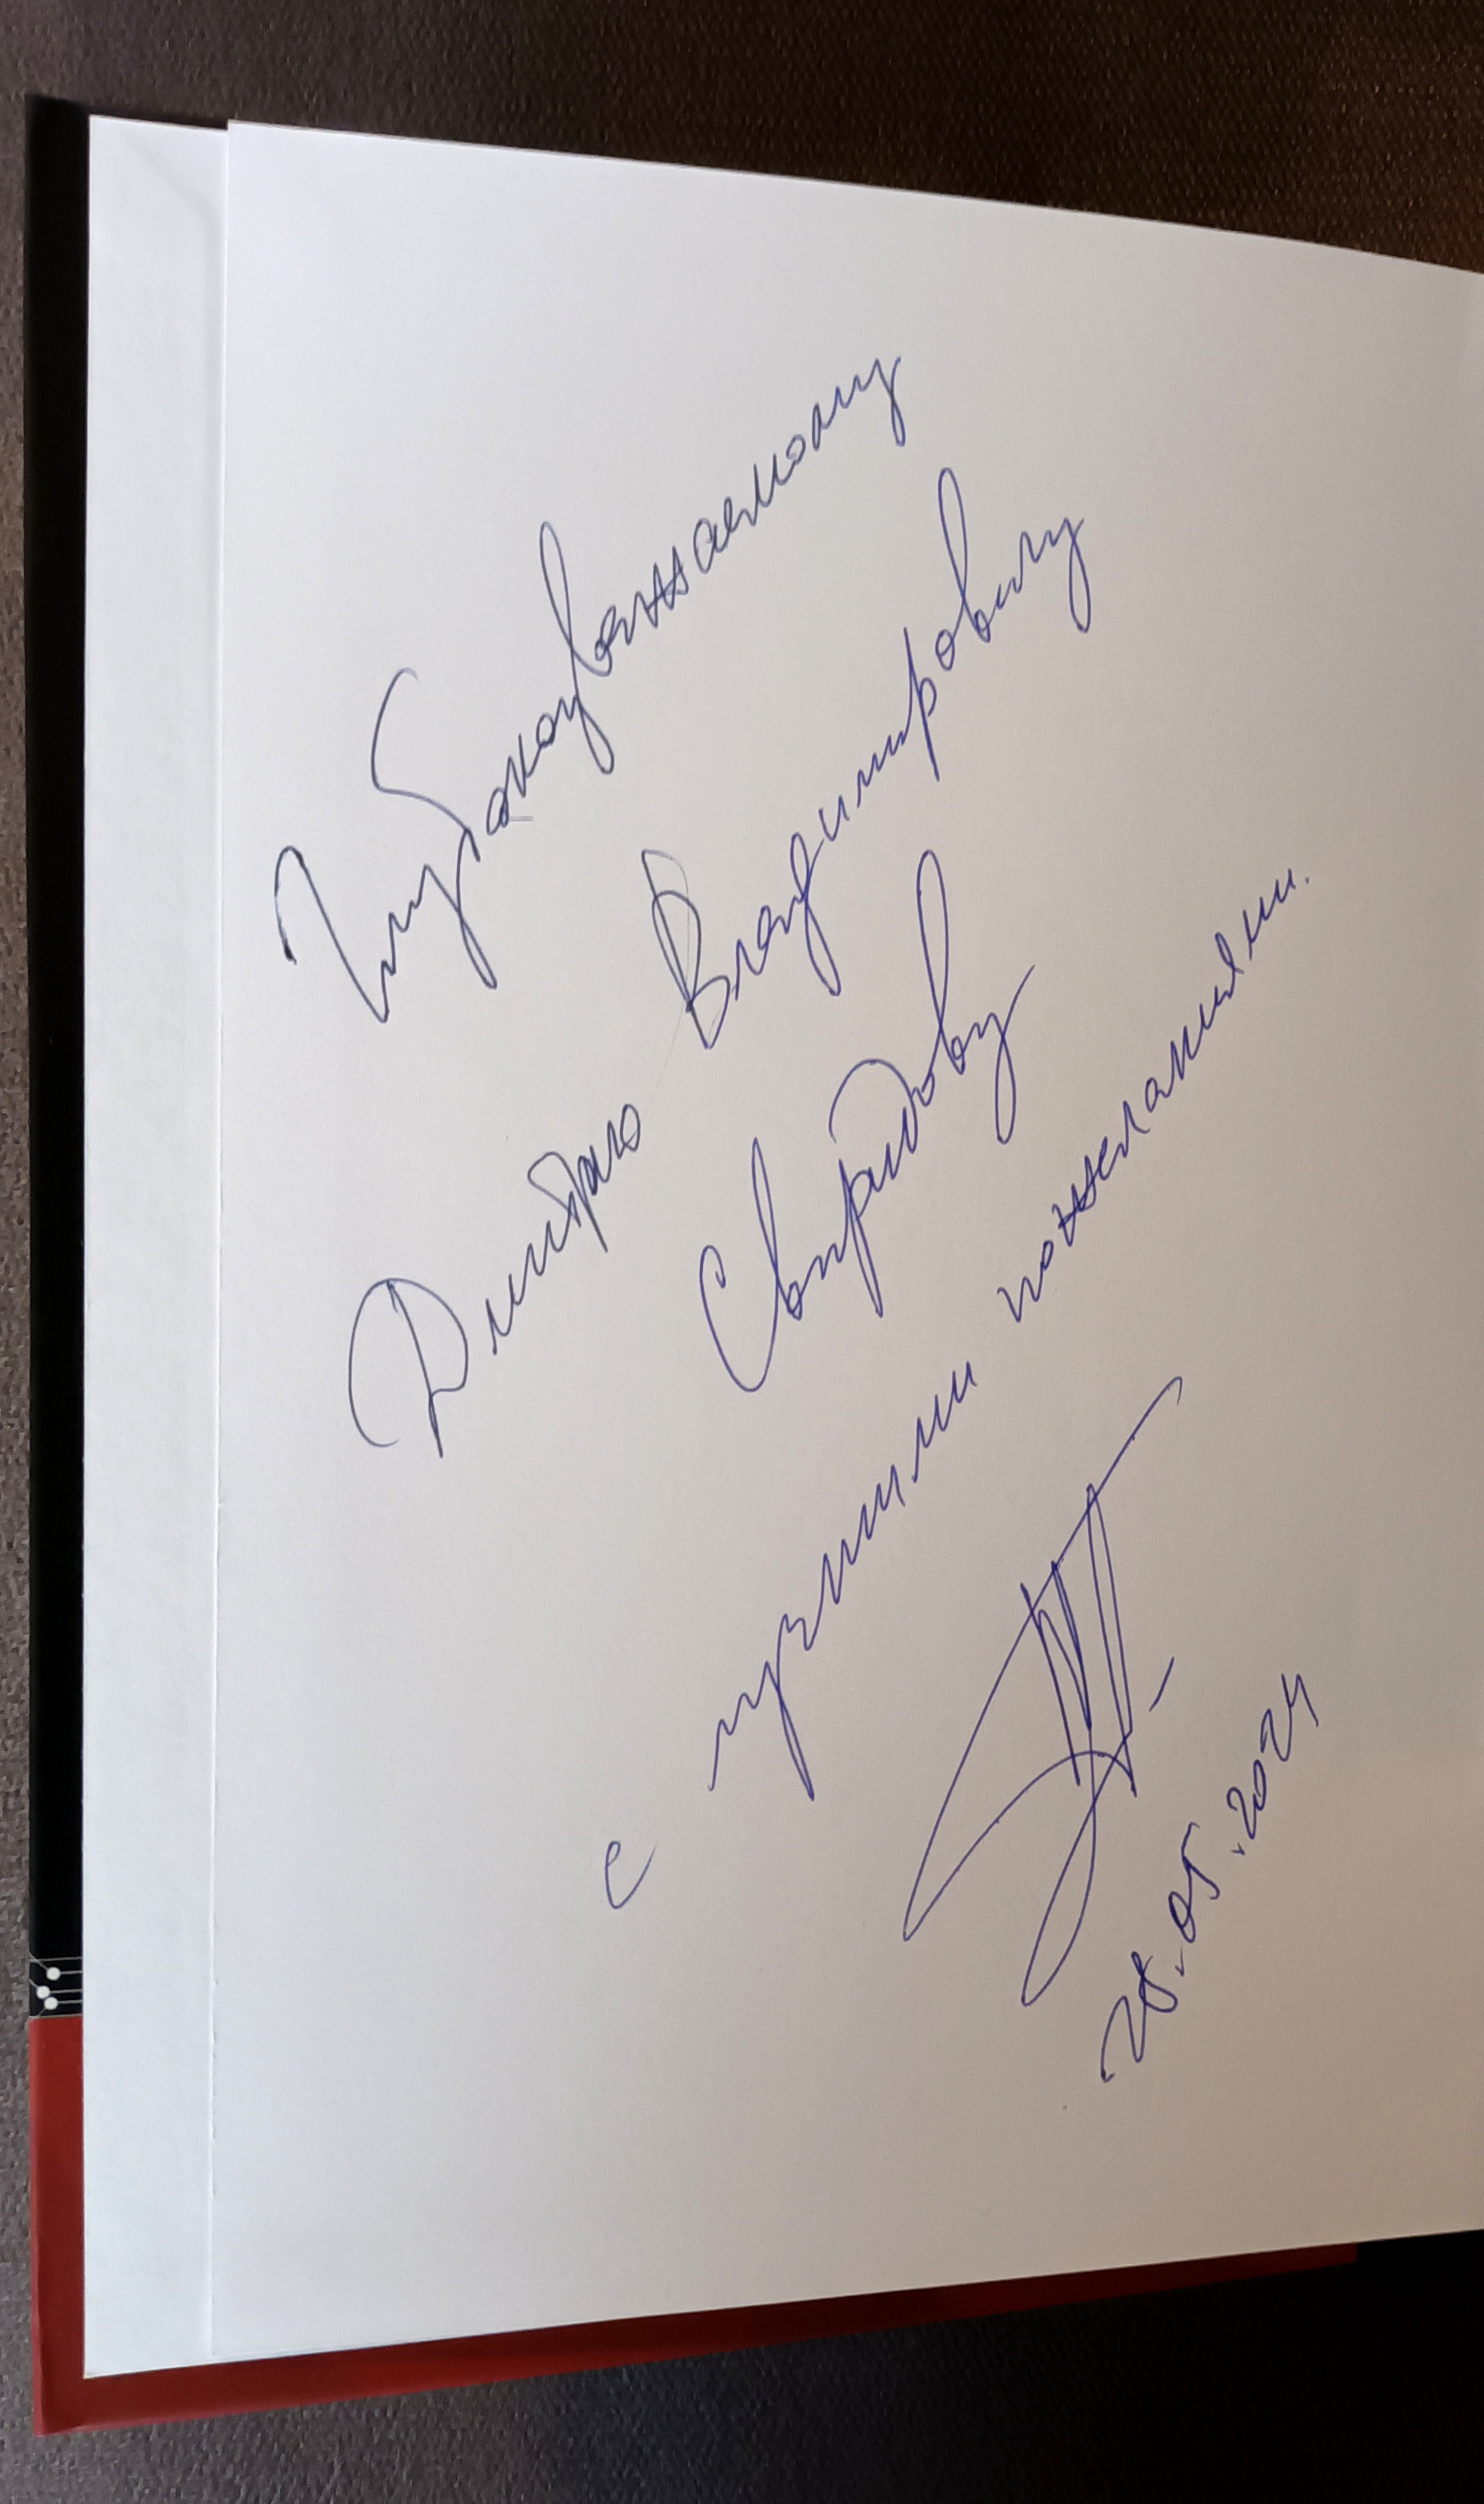 Глубокоуважаемому
Дмитрию Владимировичу
Свиридову
с лучшими пожеланиями.
28.05.2024